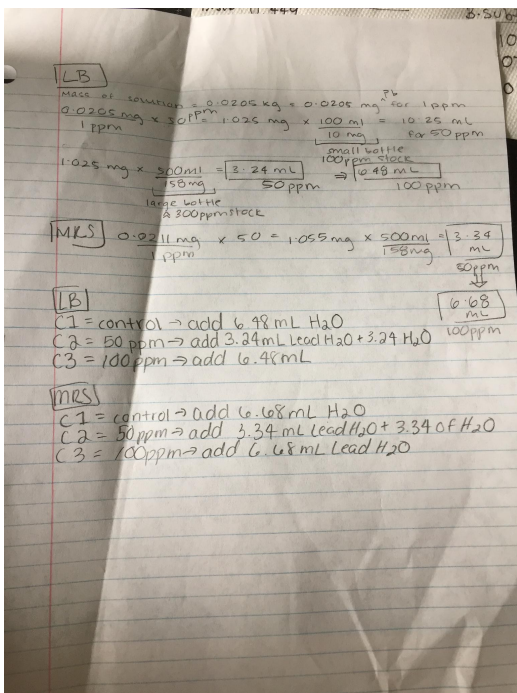 B. Sub
LB
Mass of solution = 0.0205 kg = 0.0205 mg Pb for 1ppm
0.0205 mg / 1 ppm × 50ppm = 1.025 mg × 100 ml / 10 mg = 10.25 mL for 50ppm
small bottle
100ppm stock
1.025 mg × 500ml / 158mg = 3.24 mL 50ppm ⇒ 6.48 mL 100ppm
large bottle
a 300ppm stock
MRS 0.0211 mg / 1 ppm × 50 = 1.055 mg × 500ml / 158mg = 3.34 mL
50ppm
⇓
6.68 mL
100ppm
LB
C1 = control → add 6.48 mL H2O
C2 = 50 ppm → add 3.24 mL Lead H2O + 3.24 H2O
C3 = 100ppm → add 6.48mL
MRS
C1 = control → add 6.68 mL H2O
C2 = 50ppm → add 3.34 mL Lead H2O + 3.34 of H2O
C3 = 100ppm → add 6.68 mL Lead H2O